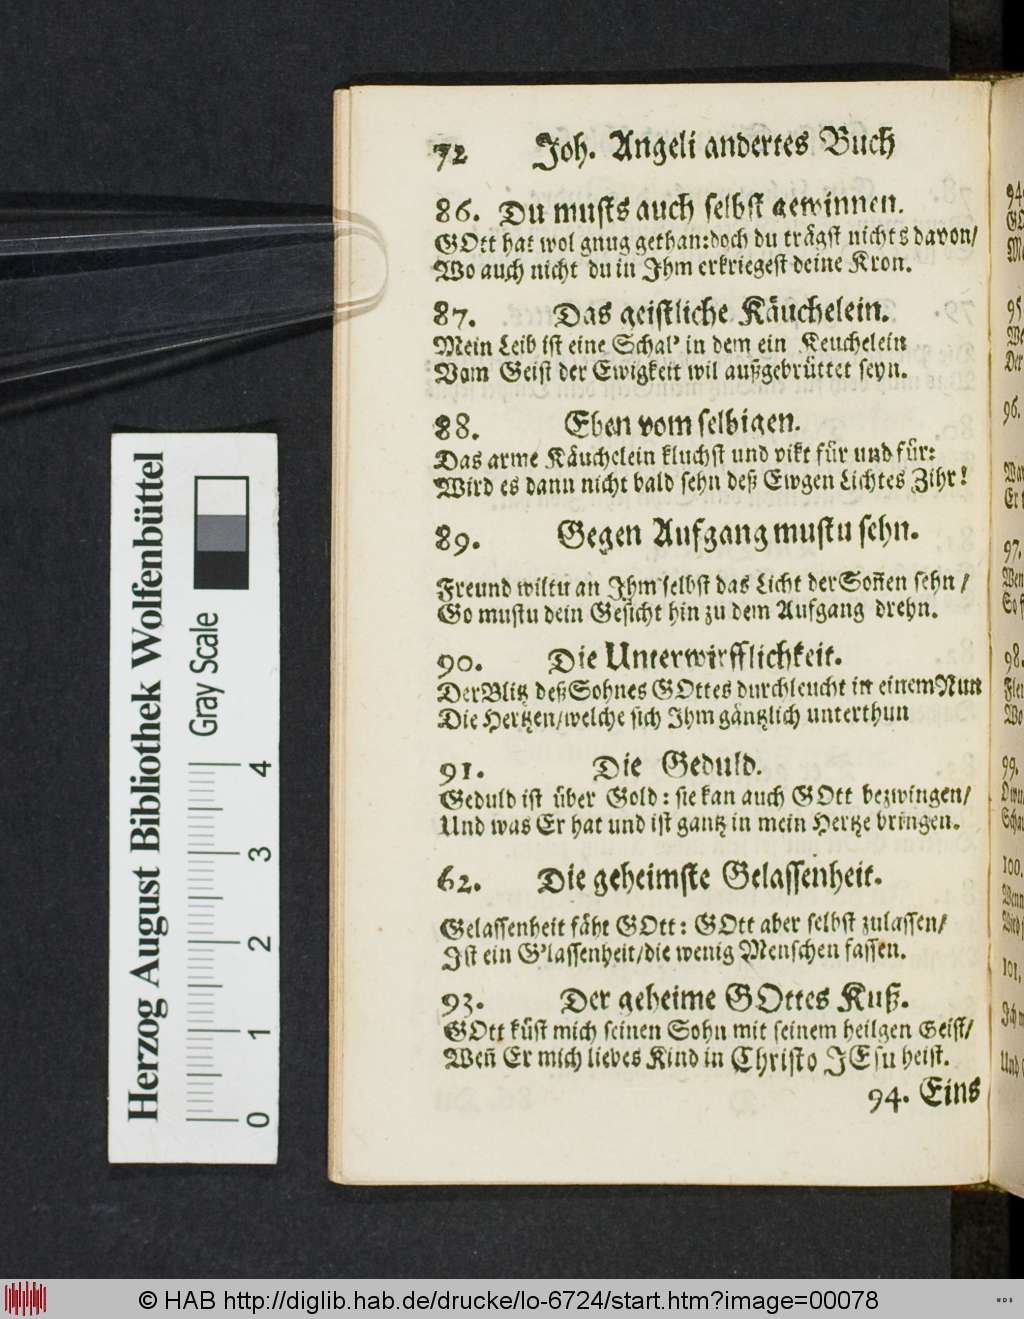 72 Joh. Angeli andertes Buch
86. Du musts auch selbst gewinnen.
GOtt hat wol gnug gethan: doch du trägst nichts davon/
Wo auch nicht du in Ihm erkriegest deine Kron.
87. Das geistliche Käuchelein.
Mein Leib ist eine Schal' in dem ein Keuchelein
Vom Geist der Ewigkeit wil außgebrüttet seyn.
88. Eben vom selbigen.
Das arme Käuchelein kluchst und pikt für und für:
Wird es dann nicht bald sehn deß Ewgen Lichtes Zihr!
89. Gegen Aufgang mustu sehn.
Freund wiltu an Ihm selbst das Licht der Soñen sehn /
So mustu dein Gesicht hin zu dem Aufgang drehn.
90. Die Unterwirfflichkeit.
Der Blitz deß Sohnes GOttes durchleucht in einem Nun
Die Hertzen/welche sich Ihm gäntzlich unterthun
91. Die Geduld.
Geduld ist über Gold: sie kan auch GOtt bezwingen/
Und was Er hat und ist gantz in mein Hertze bringen.
62. Die geheimste Gelassenheit.
Gelassenheit fäht GOtt: GOtt aber selbst zulassen/
Ist ein G'lassenheit/die wenig Menschen fassen.
93. Der geheime GOttes Kuß.
GOtt küst mich seinen Sohn mit seinem heilgen Geist/
Weñ Er mich liebes Kind in Christo JEsu heist.
94. Eins
94.
95
Der
96.
97.
So
98.
99.
100.
101,
Und
Herzog August Bibliothek Wolfenbüttel
Gray Scale
0 1 2 3 4
© HAB http://diglib.hab.de/drucke/lo-6724/start.htm?image=00078